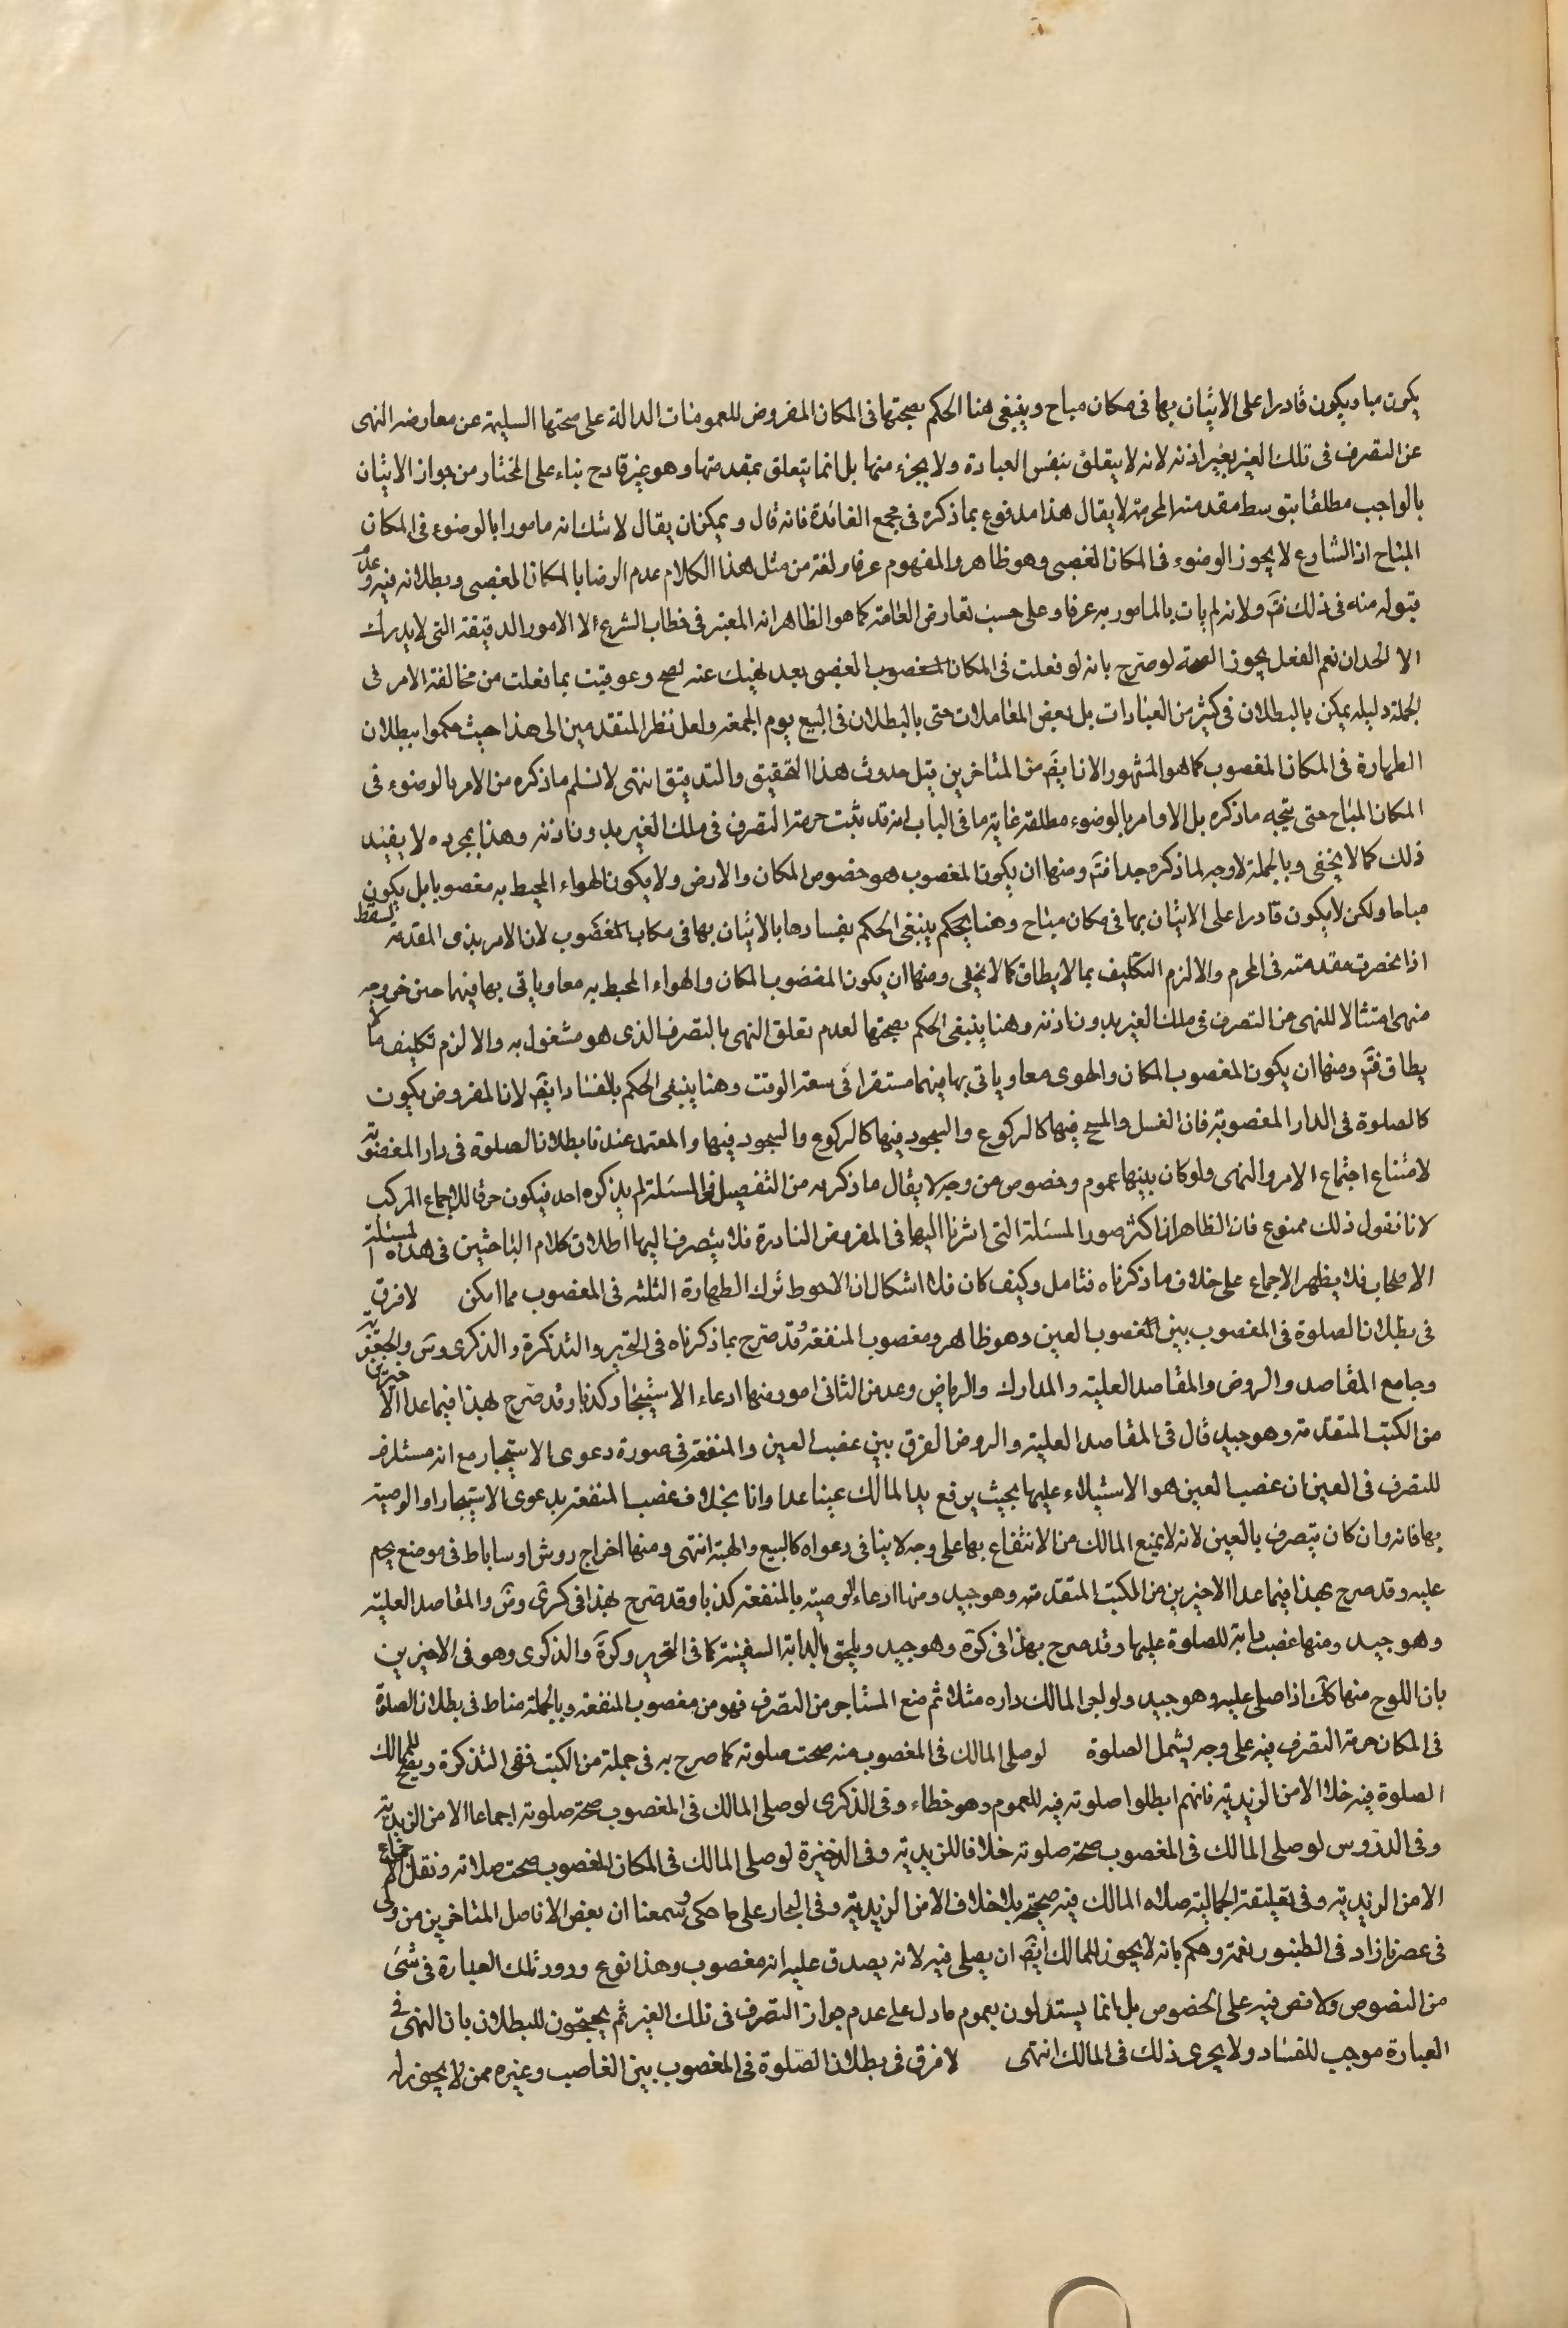 يكون مباحا ويكون قادرا على الاتيان بها فى مكان مباح وينبغى هنا الحكم بصحتها فى المكان المفروض للعمومات الدالة على صحتها السليمة عن معارضه النهى
عن التصرف فى تلك الغير بغير اذنه لانه لا يتعلق بنفس العبادة ولا بجزء منها بل انما يتعلق بمقدمتها وهو غير قادح بناء على المختار من جواز الاتيان
بالواجب مطلقا بتوسط مقدمته المحرمة لا يقال هذا مدفوع بما ذكره فى مجمع الفائدة فانه قال ويمكن ان يقال لا شك انه مامورا بالوضوء فى المكان
المباح اذ الشارع لا يجوز الوضوء فى المكان المغصبى وهو ظاهر والمفهوم عرفا ولغة من مثل هذا الكلام عدم الرضا بالمكان المغصبى وبطلانه فيه وعدم
قبوله منه فى ذلك فتم ولانه لم يات بالمامور به عرفا وعلى حسب تعارض العامة كما هو الظاهر انه المعتبر فى خطاب الشرع الا الامور الدقيقة التى لا يدرك
الا لحدان نعم الفعل يجوز الصحة لو صرح بانه لو فعلت فى المكان المغصوب المغصبى بعد نهيك عنه لصح وعوقبت بما فعلت من مخالفة الامر فى
الجملة دليله يمكن بالبطلان فى كثير من العبادات بل بعض المعاملات حتى بالبطلان فى البيع يوم الجمعة ولعل نظر المتقدمين الى هذا حيث حكموا ببطلان
الطهارة فى المكان المغصوب كما هو المشهور الان ايضَ من المتاخرين قبل حدوث هذا التحقيق والتدقيق انتهى لا نسلم ما ذكره من الامر بالوضوء فى
المكان المباح حتى يتجه ما ذكره بل الاوامر بالوضوء مطلقة غاية ما فى الباب انه قد ثبت حرمة التصرف فى ملك الغير بدون اذنه وهذا بمجرده لا يفيد
ذلك كما لا يخفى وبالجملة لا وجه لما ذكره جدا فتَم ومنها ان يكون المغصوب هو خصوص المكان والارض ولا يكون الهواء المحيط به مغصوبا بل يكون
مباحا ولكن لا يكون قادرا على الاتيان بها فى مكان مباح وهنا يحكم ينبغى الحكم بفسادها بالاتيان بها فى مكاب المغصوب لان الامر بذى المقدمة يسقط
اذا انحصرت مقدمته فى المحرم والا لزم التكليف بما لا يطاق كما لا يخفى ومنها ان يكون المغصوب المكان والهواء المحيط به معا وياتى بها فيهما حين خروجه
منهى امتثالا للنهى من التصرف فى ملك الغير بدون اذنه وهنا ينبغى الحكم بصحتها لعدم تعلق النهى بالتصرف الذى هو مشغول به والا لزم تكليف ما لا
يطاق فتَم ومنها ان يكون المغصوب المكان والهوى معا وياتى بها فيهما مستقرا فى سعة الوقت وهنا ينبغى الحكم بالفساد ايضَ لان المفروض يكون
كالصلوة فى الدار المغصوبة فان الغسل والمسح فيها كالركوع والسجود فيها كالركوع والسجود فيها والمعتمد عندنا بطلان الصلوة فى دار المغصوبة
لامتناع اجتماع الامر والنهى ولو كان بينهما عموم وخصوص من وجه لا يقال ما ذكرته من التفصيل فى المسئلة لم يذكره احد فيكون خرقا للاجماع المركب
لانا نقول ذلك ممنوع فان الظاهر ان اكثر صور المسئلة التى اشرنا اليها فى المفروض النادرة فلا ينصرف اليها اطلاق كلام الباحثين فى هذه المسئلة
الاصحاب فلا يظهر الاجماع على خلاف ما ذكرناه فتامل وكيف كان فلا اشكال ان الاحوط ترك الطهارة الثلثه فى المغصوب مما امكن لا فرق
فى بطلان الصلوة فى المغصوب بين المغصوب العين وهو ظاهر ومغصوب المنفعة وقد صرح بما ذكرناه فى التحرير والتذكرة والذكرى وسَ والجعفرية
وجامع المقاصد والروض والمقاصد العلية والمدارك والرياض وعد من الثانى امور منها ادعاء الاستيجار كذبا وقد صرح بهذا فيما عدا الاخيرين
من الكتب المتقدمة وهو جيد قال فى المقاصد العلية والروض الفرق بين غصب العين والمنفعة فى صورة دعوى الاستيجار مع انه مستلزم
للتصرف فى العين ان غصب العين هو الاستيلاء عليها بحيث يرفع يد المالك عينا عدا وانا بخلاف غصب المنفعة بدعوى الاستيجار او الوصية
بها فانه وان كان يتصرف بالعين لانه لا يمنع المالك من الانتفاع بها على وجه لا ينافى دعواه كالبيع والهبة انتهى ومنها اخراج روشن او ساباط فى موضع يحرم
عليه وقد صرح بهذا فيما عدا الاخيرين من الكتب المتقدمة وهو جيد ومنها ادعاء الوصية بالمنفعة كذبا وقد صرح بهذا فى كرَى وضَ والمقاصد العلية
وهو جيد ومنها غصب دابة للصلوة عليها وقد صرح بهذا فى كرَة وهو جيد ويلحق بالدابة السفينة كما فى التحرير وكرَة والذكرى وهو فى الاخيرين
بان اللوح منها ككَ اذا صلى عليه وهو جيد ولو اجر المالك داره مثلا ثم منع المستاجر من التصرف فهو من مغصوب المنفعة وبالجملة مناط فى بطلان الصلاة
فى المكان حرمة التصرف فيه على وجه يشمل الصلوة لو صلى المالك فى المغصوب منه صحت صلوته كما صرح به فى جملة من الكتب ففى التذكرة ويصح للمالك
الصلوة فيه خلافا الا من الزيدية فانهم ابطلوا صلوته فيه للعموم وهو خطاء وفى الذكرى لو صلى المالك فى المغصوب صحة صلوته اجماعا الا من الزيدية
وفى الدروس لو صلى المالك فى المغصوب صحة صلوته خلافا للزيدية وفى الذخيرة لو صلى المالك فى المكان المغصوب صحت صلاته ونقل الاجماع
الا من الزيدية وفى تعليقة الجمالية صلاه المالك فيه صحيحة بلا خلاف الا من الزيدية وفى البحار على ما حكى وسمعنا ان بعض الافاضل المتاخرين من ولى
فى عصرنا زاد فى الطنبور نغمة وحكم بانه لا يجوز للمالك ايضَ ان يصلى فيه لانه يصدق عليه انه مغصوب وهذا فرع ورود تلك العبارة فى شىَ
من النصوص ولا نص فيه على الخصوص بل انما يستدلون بعموم ما دل على عدم جواز التصرف فى تلك الغير ثم يحتجون للبطلان بان النهى فى
العبارة موجب للفساد ولا يجرى ذلك فى المالك انتهى لا فرق فى بطلان الصلوة فى المغصوب بين الغاصب وغيره ممن لا يجوز له